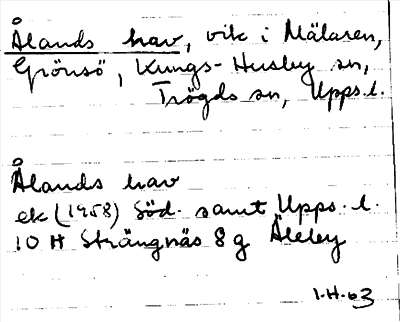 Ålands hav, vik i Mälaren,
Grönsö, Kungs-Husby sn,
Trögds sn, Upps. l.
Ålands hav
ek (1958) Söd. samt Upps. l.
10 H Strängnäs 8 g Äleby
1-H-63